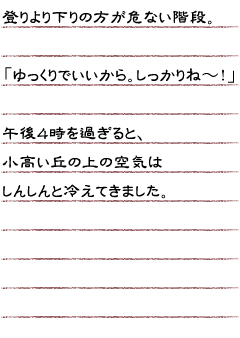 登りより下りの方が危ない階段。
「ゆっくりでいいから。しっかりね～！」
午後4時を過ぎると、
小高い丘の上の空気は
しんしんと冷えてきました。